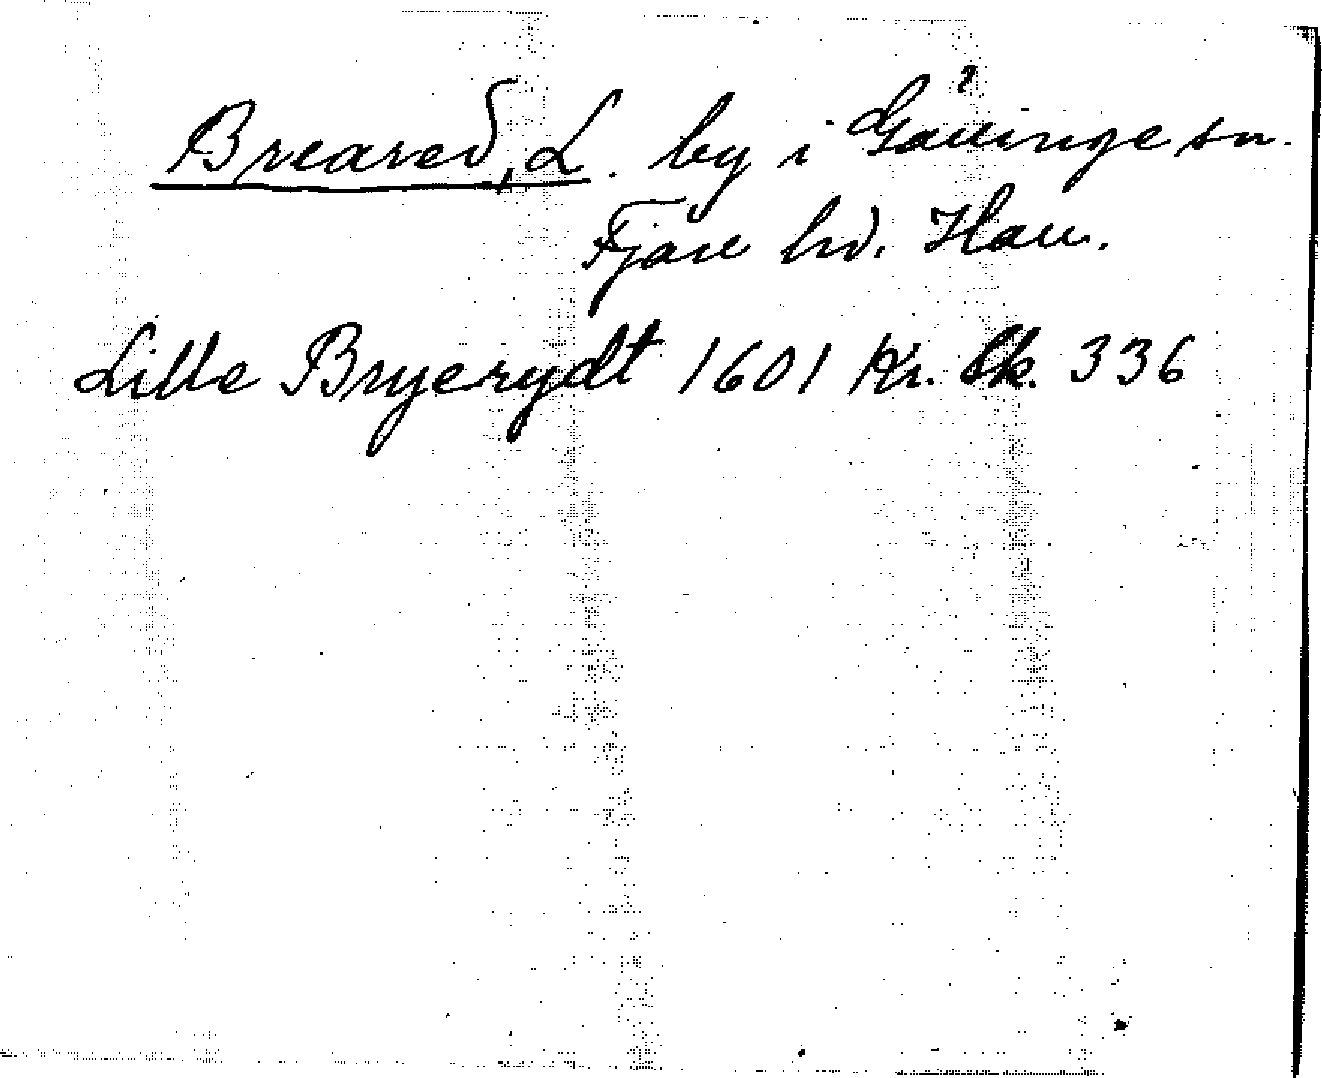 Breared, L. by i Gällinge sn.
Fjäre hd. Hall.
Lille Bryerydt 1601 Kr. Sk. 336